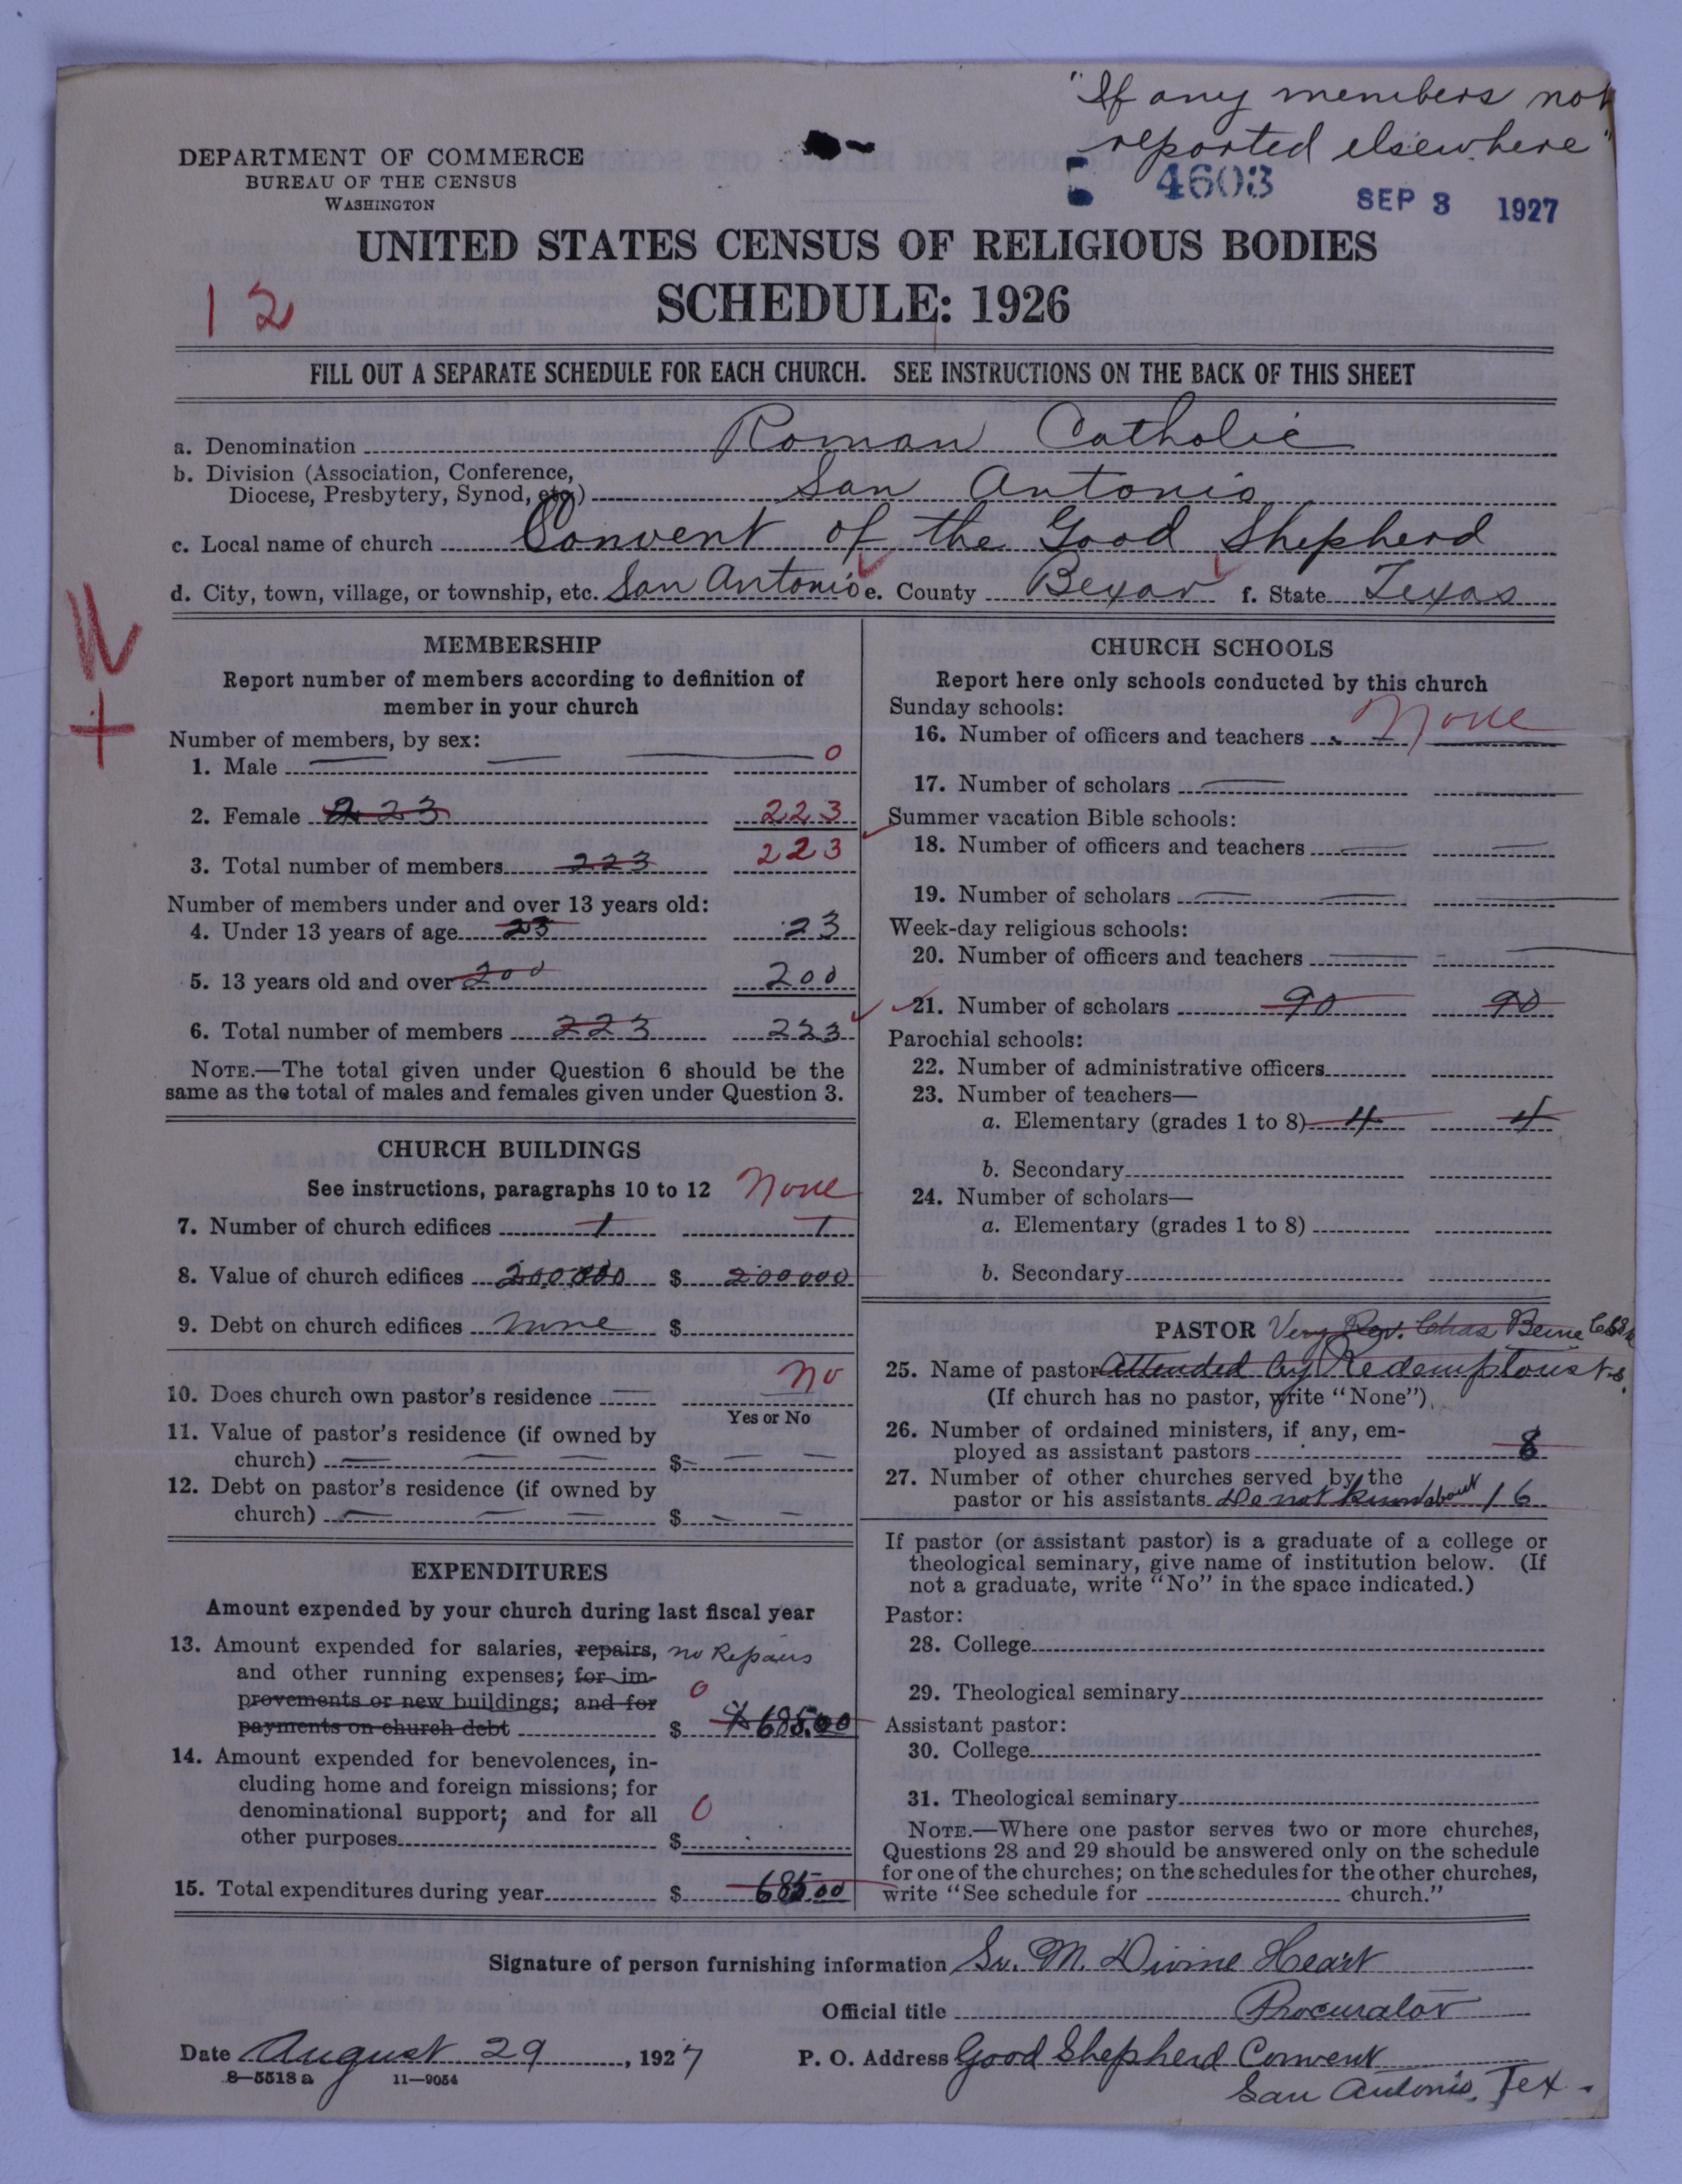 "If any members not
reported elsewhere"
4603 SEP 3 1927
DEPARTMENT OF COMMERCE
BUREAU OF THE CENSUS
WASHINGTON
UNITED STATES CENSUS OF RELIGIOUS BODIES
SCHEDULE: 1926
12
FILL OUT A SEPARATE SCHEDULE FOR EACH CHURCH. SEE INSTRUCTIONS ON THE BACK OF THIS SHEET
a. Denomination Roman Catholic
b. Division (Association, Conference,
Diocese, Presbytery, Synod, etc.) San Antonio
c. Local name of church Convent of the Good Shepherd
d. City, town, village, or township, etc. San Antonio e. County Bexar f. State Texas
MEMBERSHIP
Report number of members according to definition of
member in your church
Number of members, by sex:
1. Male 0
2. Female 223 223
3. Total number of members 223 223
Number of members under and over 13 years old:
4. Under 13 years of age 23 23
5. 13 years old and over 200 200
6. Total number of members 223 223
NOTE.—The total given under Question 6 should be the
same as the total of males and females given under Question 3.
CHURCH BUILDINGS
See instructions, paragraphs 10 to 12 None
7. Number of church edifices 1 1
8. Value of church edifices 200,000 $ 200000
9. Debt on church edifices none $
10. Does church own pastor's residence No
Yes or No
11. Value of pastor's residence (if owned by
church) $
12. Debt on pastor's residence (if owned by
church) $
EXPENDITURES
Amount expended by your church during last fiscal year
13. Amount expended for salaries, repairs, no Repairs
and other running expenses; for im-
provements or new buildings; and for 0
payments on church debt $ 685.00
14. Amount expended for benevolences, in-
cluding home and foreign missions; for
denominational support; and for all 0
other purposes $
15. Total expenditures during year $ 685 00
CHURCH SCHOOLS
Report here only schools conducted by this church
Sunday schools: None
16. Number of officers and teachers
17. Number of scholars
Summer vacation Bible schools:
18. Number of officers and teachers
19. Number of scholars
Week-day religious schools:
20. Number of officers and teachers
21. Number of scholars 90 90
Parochial schools:
22. Number of administrative officers
23. Number of teachers—
a. Elementary (grades 1 to 8) 4 4
b. Secondary
24. Number of scholars—
a. Elementary (grades 1 to 8)
b. Secondary
PASTOR Very Rev. Chas Beine
25. Name of pastor Attended by Redemptorists.
(If church has no pastor, write "None")
26. Number of ordained ministers, if any, em-
ployed as assistant pastors 8
27. Number of other churches served by the
pastor or his assistants Do not know about 16
If pastor (or assistant pastor) is a graduate of a college or
theological seminary, give name of institution below. (If
not a graduate, write "No" in the space indicated.)
Pastor:
28. College
29. Theological seminary
Assistant pastor:
30. College
31. Theological seminary
NOTE.—Where one pastor serves two or more churches,
Questions 28 and 29 should be answered only on the schedule
for one of the churches; on the schedules for the other churches,
write "See schedule for church."
Signature of person furnishing information Sr. M. Divine Heart
Official title Procurator
Date August 29, 1927 P. O. Address Good Shepherd Convent
8—5518a 11—9054 San Antonio, Tex.